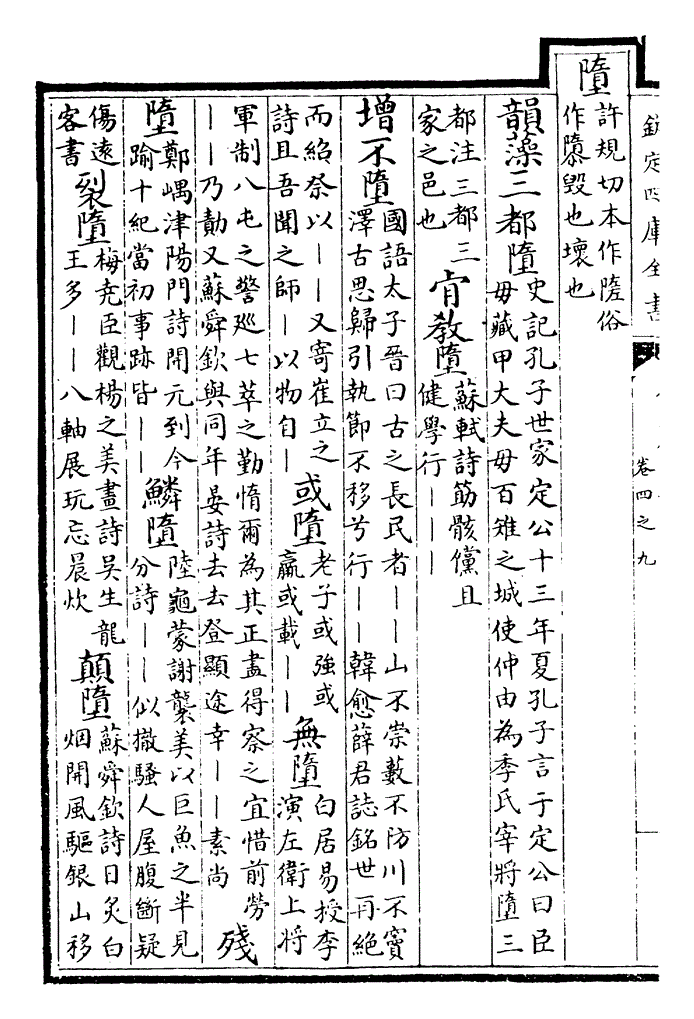 欽定四庫全書
卷四之九
墮
許規切本作隓俗
作隳毀也壞也
韻藻三都墮
史記孔子世家定公十三年夏孔子言于定公曰臣
毋藏甲大夫毋百雉之城使仲由為季氏宰將墮三
都注三都三
家之邑也
肯教墮
蘇軾詩筋骸儻且
健學行丨丨丨
增不墮
國語太子晉曰古之長民者丨丨山不崇藪不防川不竇
澤古思歸引執節不移兮行丨丨韓愈薛君誌銘世再絕
而紹祭以丨丨又寄崔立之
詩且吾聞之師丨以物自丨
或墮
老子或強或
羸或載丨丨
無墮
白居易授李
演左衛上將
軍制八屯之警廵七萃之勤惰爾為其正盡得察之宜惜前勞
丨丨乃勣又蘇舜欽與同年晏詩去去登顯途幸丨丨素尚
殘
墮
鄭嵎津陽門詩開元到今
踰十紀當初事跡皆丨丨
鱗墮
陸龜蒙謝襲美以巨魚之半見
分詩丨丨似撒騷人屋腹斷疑
傷遠
客書
裂墮
梅堯臣觀楊之美畫詩吳生龍
王多丨丨八軸展玩忘晨炊
顛墮
蘇舜欽詩日炙白
烟開風驅銀山移